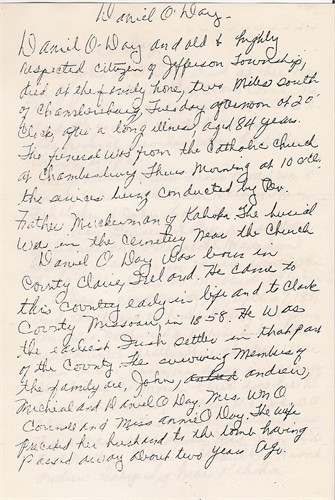 Daniel O. Day.
Daniel O. Day and old & highly
respected citizen of Jefferson Township,
died at the family home, two Miles south
of Chambersburg, Tuesday afternoon at 2 O'
Clock, after a long illness, aged 84 years.
The funeral was from the Catholic Church
at Chambersburg Thurs Morning at 10 oclk,
the services being conducted by Rev.
Father Muckerman of Kahoka. The burial
was in the Cemetery Near the Church
Daniel O Day was born in
County Claire, Ireland. He came to
this Country early in life and to Clark
County Missouri, in 1858. He was
the earliest Irish settler in that part
of the County. The surviving Members of
the family are, John, Andrew,
Micheal and Daniel O Day. Mrs. Wm O
Connell and Miss Annie O Day. The wife
preceded her husband to the tomb having
passed away about two years ago.